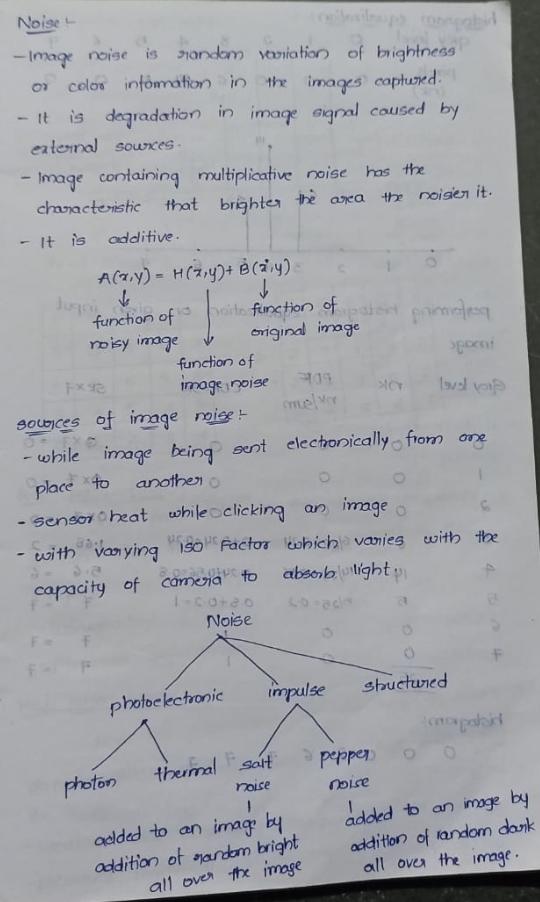 Noise :-
- Image noise is random variation of brightness
or color information in the images captured.
- It is degradation in image signal caused by
external sources.
- Image containing multiplicative noise has the
characteristic that brighter the area the noisier it.
- It is additive.
A(x,y) = H(x,y) + B(x,y)
function of
noisy image
function of
original image
function of
image noise
sources of image noise :-
- while image being sent electronically from one
place to another
- sensor heat while clicking an image
- with varying ISO Factor which varies with the
capacity of camera to absorb light.
Noise
photoelectronic impulse structured
photon thermal salt noise pepper noise
added to an image by
addition of random bright
all over the image
added to an image by
addition of random dark
all over the image.